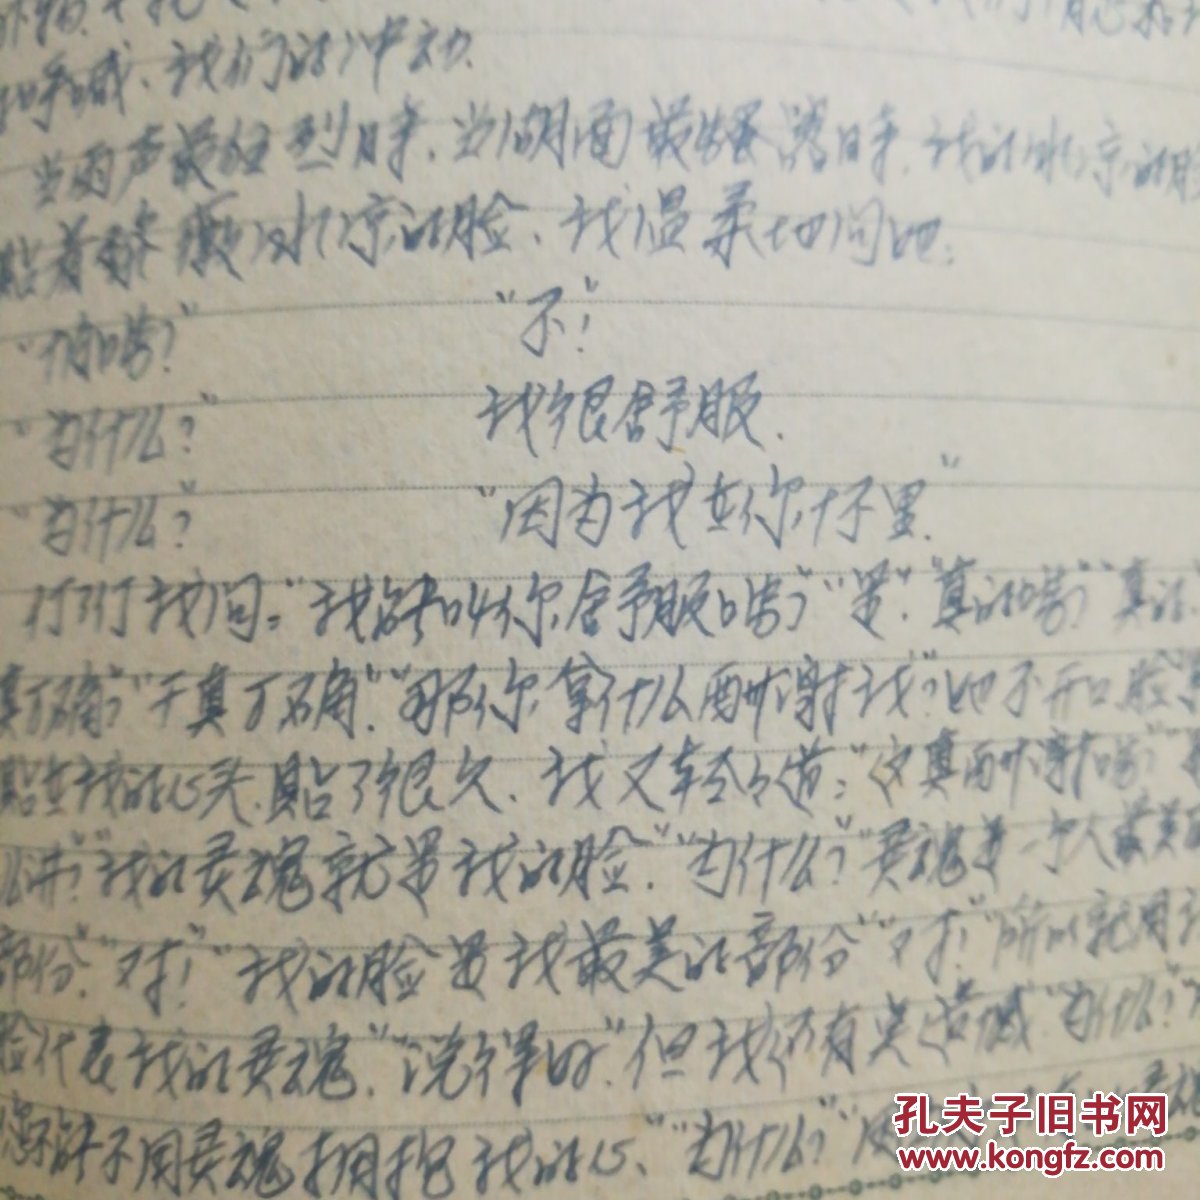 呼喊、我们的冲动.
当雨声最狂烈时.当湖面最骚嚣时.我的冰凉的脸
贴着 冰凉的脸、我温柔地问她:
"怕吗?" "不!"
"为什么?" 我很舒服.
"为什么?" "因为我在你怀里."
我问:"我能叫你舒服吗?""是""真的吗?""真的
真丁确?""千真丁确.""那你拿什么酬谢我?"她不开口脸
贴在我的心头.贴了很久.我又轻轻道:"这算酬谢吗?"
么讲?""我的灵魂就是我的脸.""为什么?""灵魂是一个人最美
部份.""对!""我的脸是我最美的部份""对!""所以就用
脸代表我的灵魂.""说得好."但我还有点遗憾"为什么?"
不用灵魂拥抱我的心、""为什么?"
孔夫子旧书网
www.kongfz.com